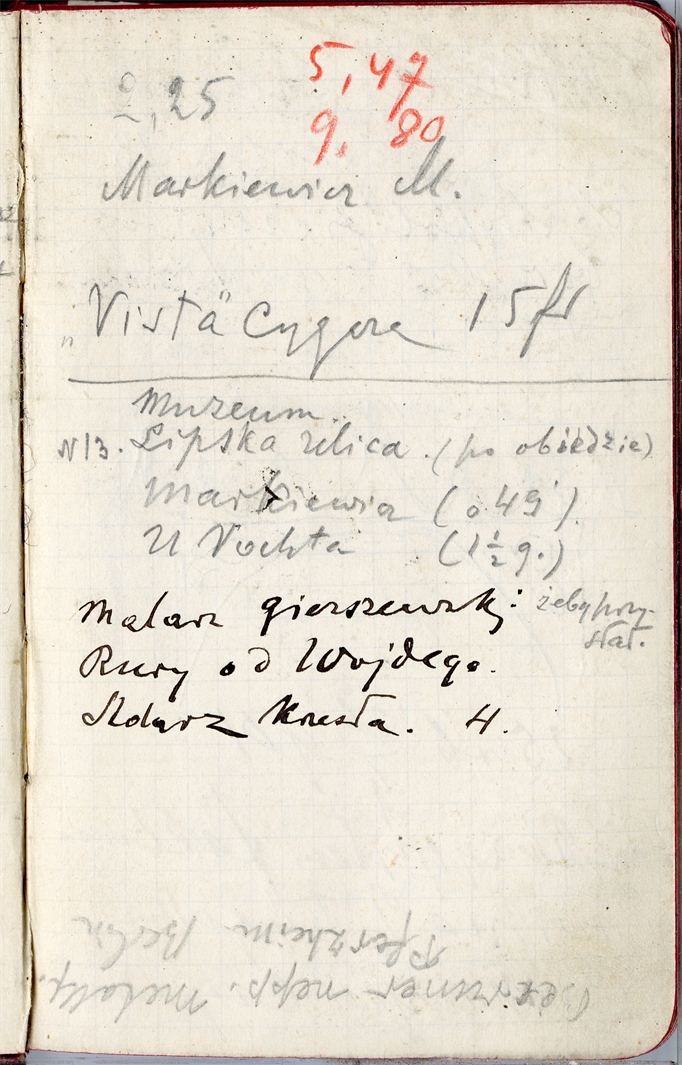 5,47
2,25
9. 80
Markiewicz M.
„Vistä Cygara 15 fr
Muzeum.
N 13. Lipska ulica. (po obiedzie)
Markiewicz (o 4g)
U Vochta (1½ g.)
Malarz Gierszewski: żeby przy-
słał.
Rury od Wojdego.
Stolarz krzesła. 4.
Pforzheim Berlin
nepp. metalf.